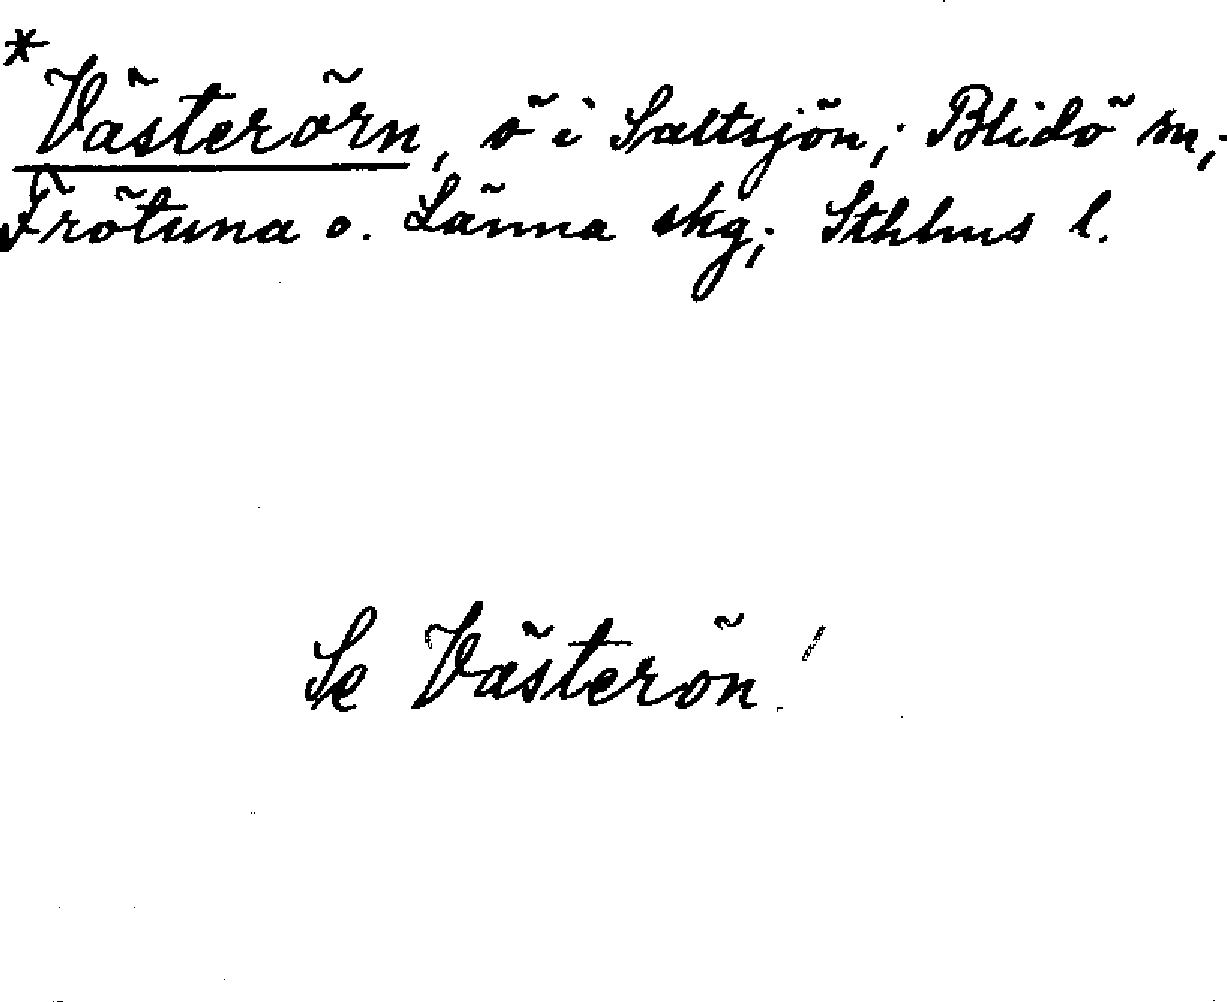 *Västerörn, ö i Saltsjön; Blidö sn;
Frötuna o. Länna skg; Sthlms l.
Se Västerön!